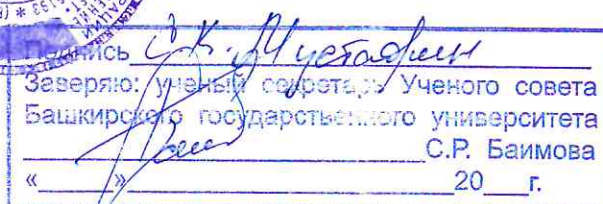 Подпись
Заверяю: ученый секретарь Ученого совета
Башкирского государственного университета
С.Р. Баимова
«___»___20___г.